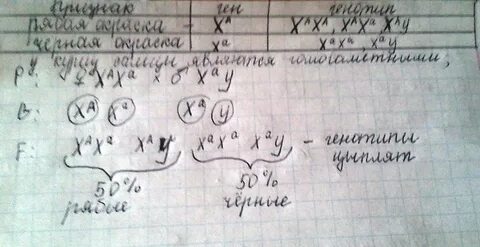 Признак ген генотип
рябая окраска - Xᴬ XᴬXᴬ, XᴬXᵃ, Xᴬy
чёрная окраска - Xᵃ XᵃXᵃ, Xᵃy
У куриц самцы являются гомогаметными;
P: ♀ XᴬXᵃ x ♂ Xᵃy
В: Xᴬ Xᵃ Xᵃ y
F: XᴬXᵃ Xᴬy XᵃXᵃ Xᵃy - генотипы
цыплят
50% 50%
рябые чёрные